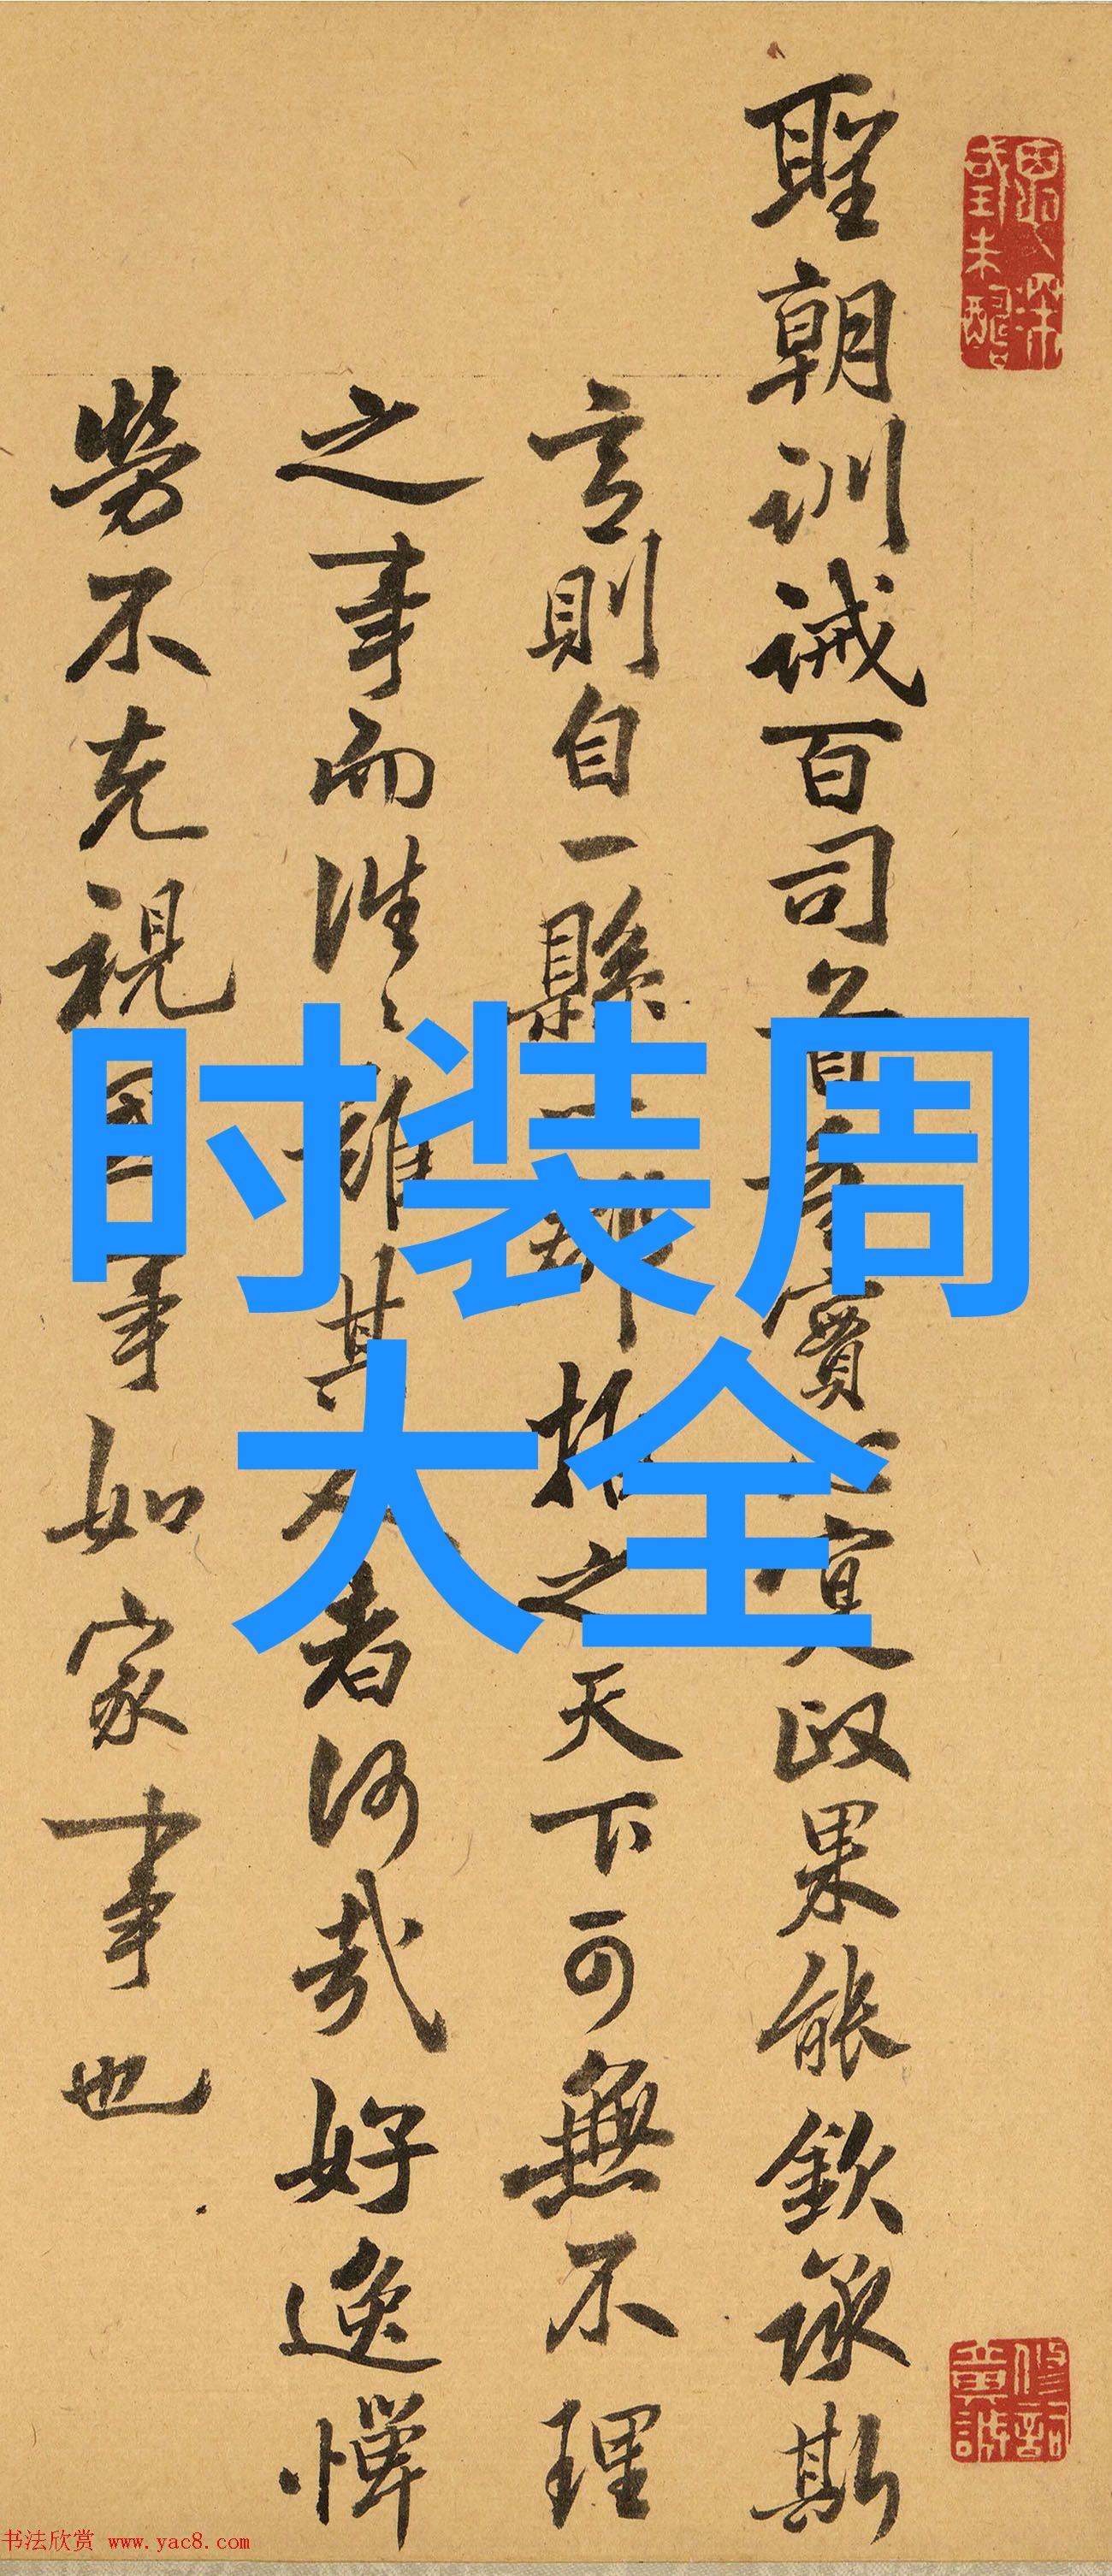 聖朝訓誡百司實心實政果能欽承斯
言則自一縣一郡推之天下可無不理
之事而往〻難其人者何哉好逸憚
勞不克視國事如家事也
时装周
大全
书法欣赏 www.yac8.com